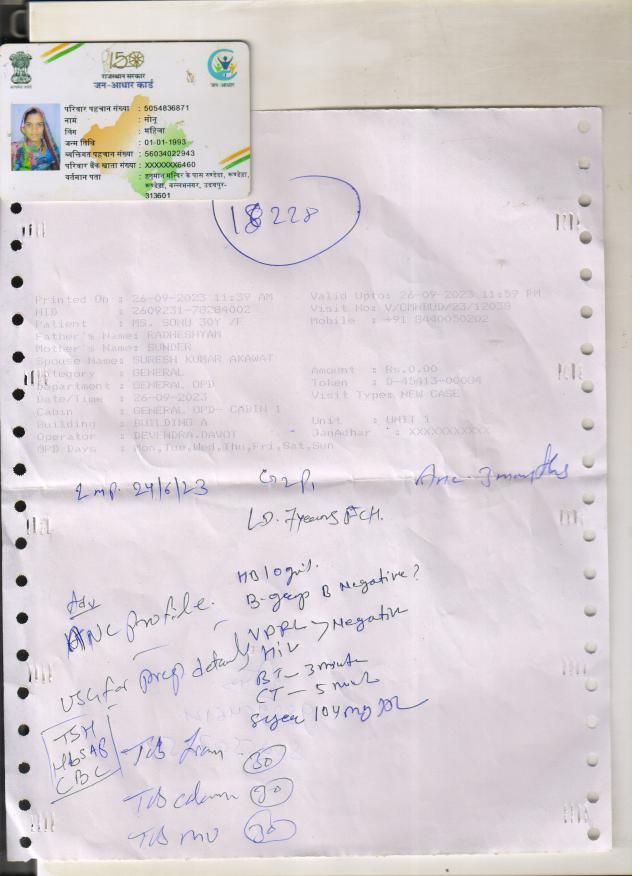 150
राजस्थान सरकार
जन-आधार कार्ड
जन-आधार
परिवार पहचान संख्या : 5054836871
नाम : सोनू
लिंग : महिला
जन्म तिथि : 01-01-1993
व्यक्तिगत पहचान संख्या : 56034022943
परिवार बैंक खाता संख्या : XXXXXXX6460
वर्तमान पता : हनुमान मन्दिर के पास रुण्डेडा, रूण्डेड़ा,
रूण्डेड़ा, वल्लभनगर, उदयपुर-
313601
18228
Printed On : 26-09-2023 11:39 AM Valid Upto: 26-09-2023 11:59 PM
HID : 2609231-78284002 Visit No: V/CMHBUD/23/12039
Patient : MS. SONU 30Y /F Mobile : +91 8440050202
Father's Name: RADHESHYAM
Mother's Name: SUNDER
Spouse Name: SURESH KUMAR AKAWAT
Category : GENERAL Amount : Rs.0.00
Department : GENERAL OPD Token : D-45413-00004
Date/Time : 26-09-2023 Visit Type: NEW CASE
Cabin : GENERAL OPD- CABIN 1
Building : BUILDING A Unit : UNIT 1
Operator : DEVENDRA.DAWOT JanAdhar : XXXXXXXXXXX
OPD Days : Mon,Tue,Wed,Thu,Fri,Sat,Sun
Lmp. 24/6/23 G2P1 Anc 3 months
LD. 7years FCH.
HB 10 gm%.
Adv B-group B Negative?
ANC profile.
VDRL > Negative
HIV
USG for preg details
BT - 3 minute
CT - 5 minute
Sugar 104 mg
TSH
HbSAg
CBC
Tab 30
Tab 30
Tab 30